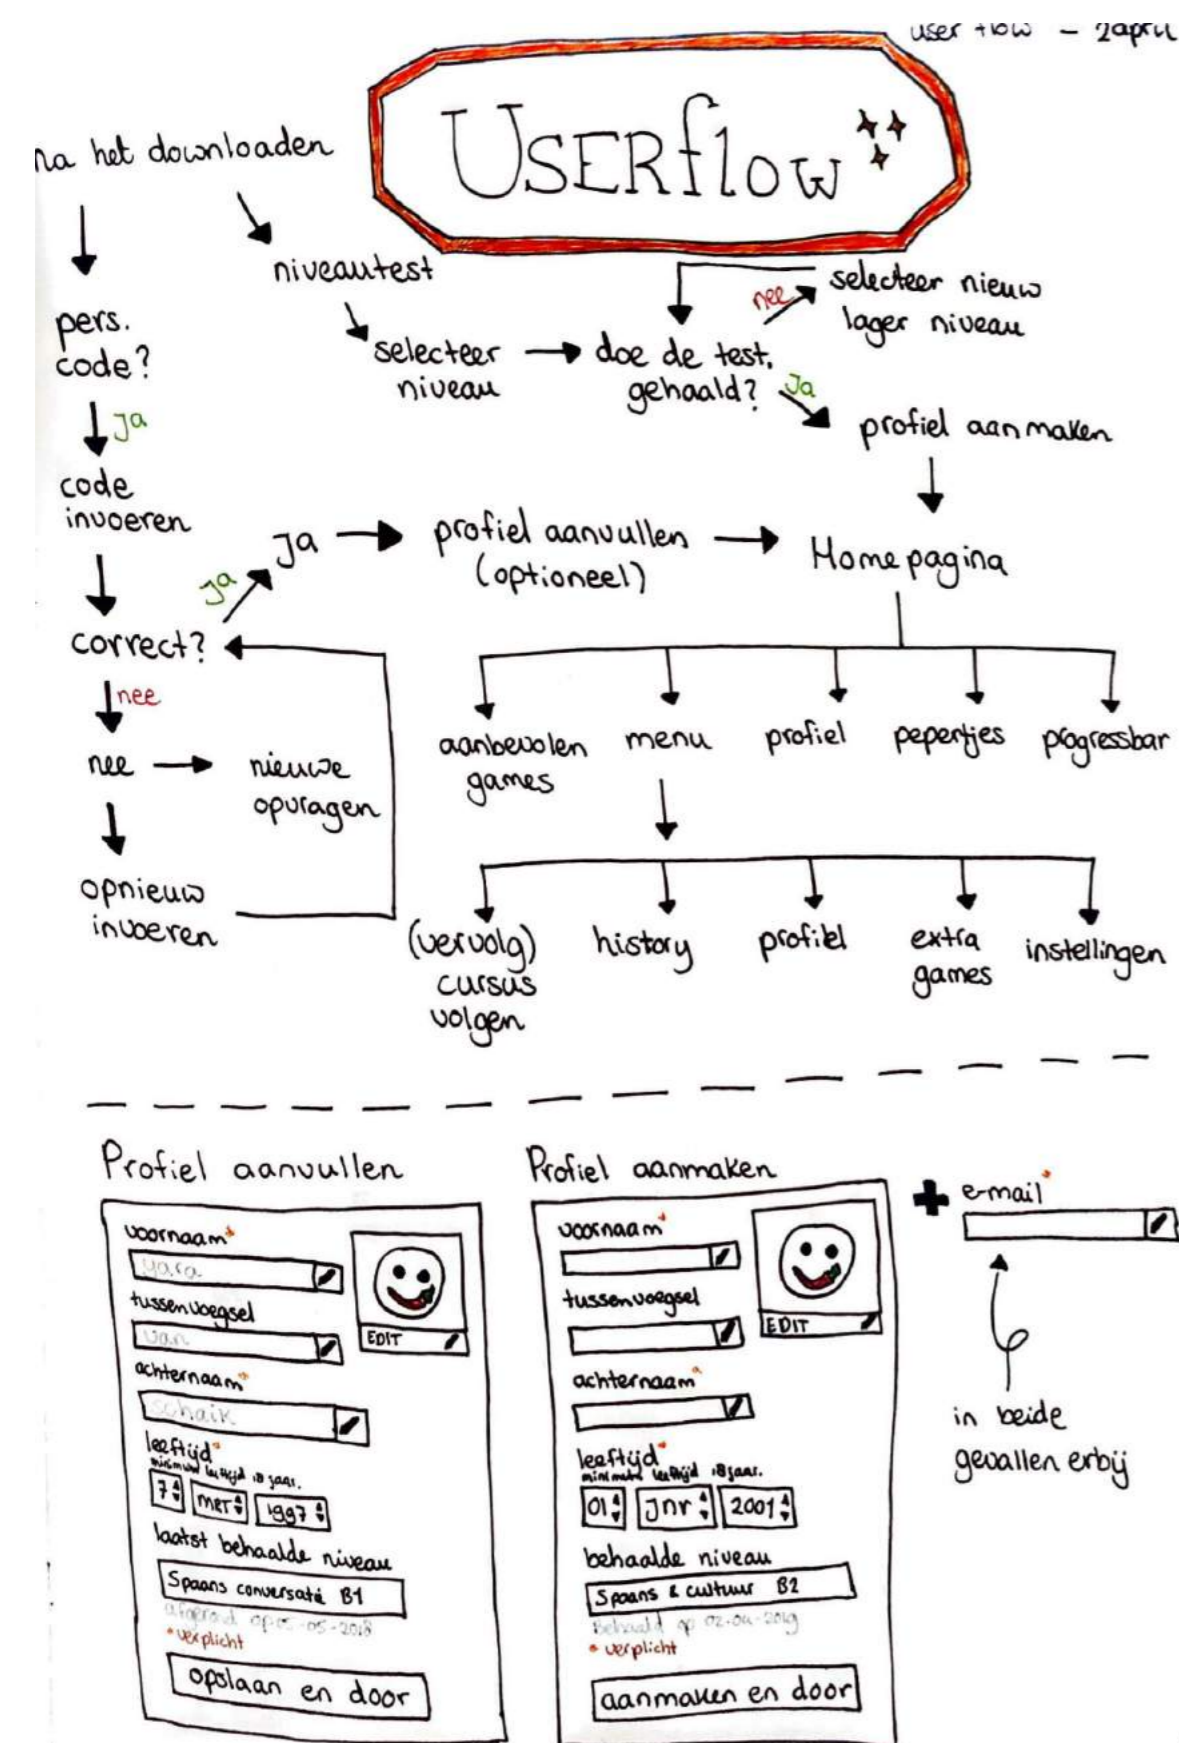 user flow - 2april
USERflow
na het downloaden
niveautest
pers.
code?
selecteer
niveau
doe de test.
gehaald?
nee
selecteer nieuw
lager niveau
Ja
profiel aanmaken
Ja
code
invoeren
Ja
Ja
profiel aanvullen
(optioneel)
Homepagina
correct?
nee
nee
nieuwe
opvragen
opnieuw
invoeren
aanbevolen
games
menu
profiel
pepertjes
progressbar
(vervolg)
cursus
volgen
history
profiel
extra
games
instellingen
Profiel aanvullen
voornaam*
yara
tussenvoegsel
van
achternaam*
schaik
EDIT
leeftijd*
minimum leeftijd 18 jaar.
7 mrt 1997
laatst behaalde niveau
Spaans conversatie B1
afgerond op 05-05-2018
* verplicht
opslaan en door
Profiel aanmaken
voornaam*
tussenvoegsel
achternaam*
EDIT
leeftijd*
minimale leeftijd 18 jaar.
01 Jnr 2001
behaalde niveau
Spaans & cultuur B2
Behaald op 02-04-2019
* verplicht
aanmaken en door
+ e-mail*
in beide
gevallen erbij